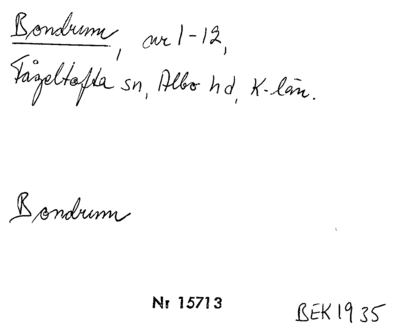 Bondrum, nr 1-12,
Fågeltofta sn, Albo hd, K-län.
Bondrum
Nr 15713
BEK 1935